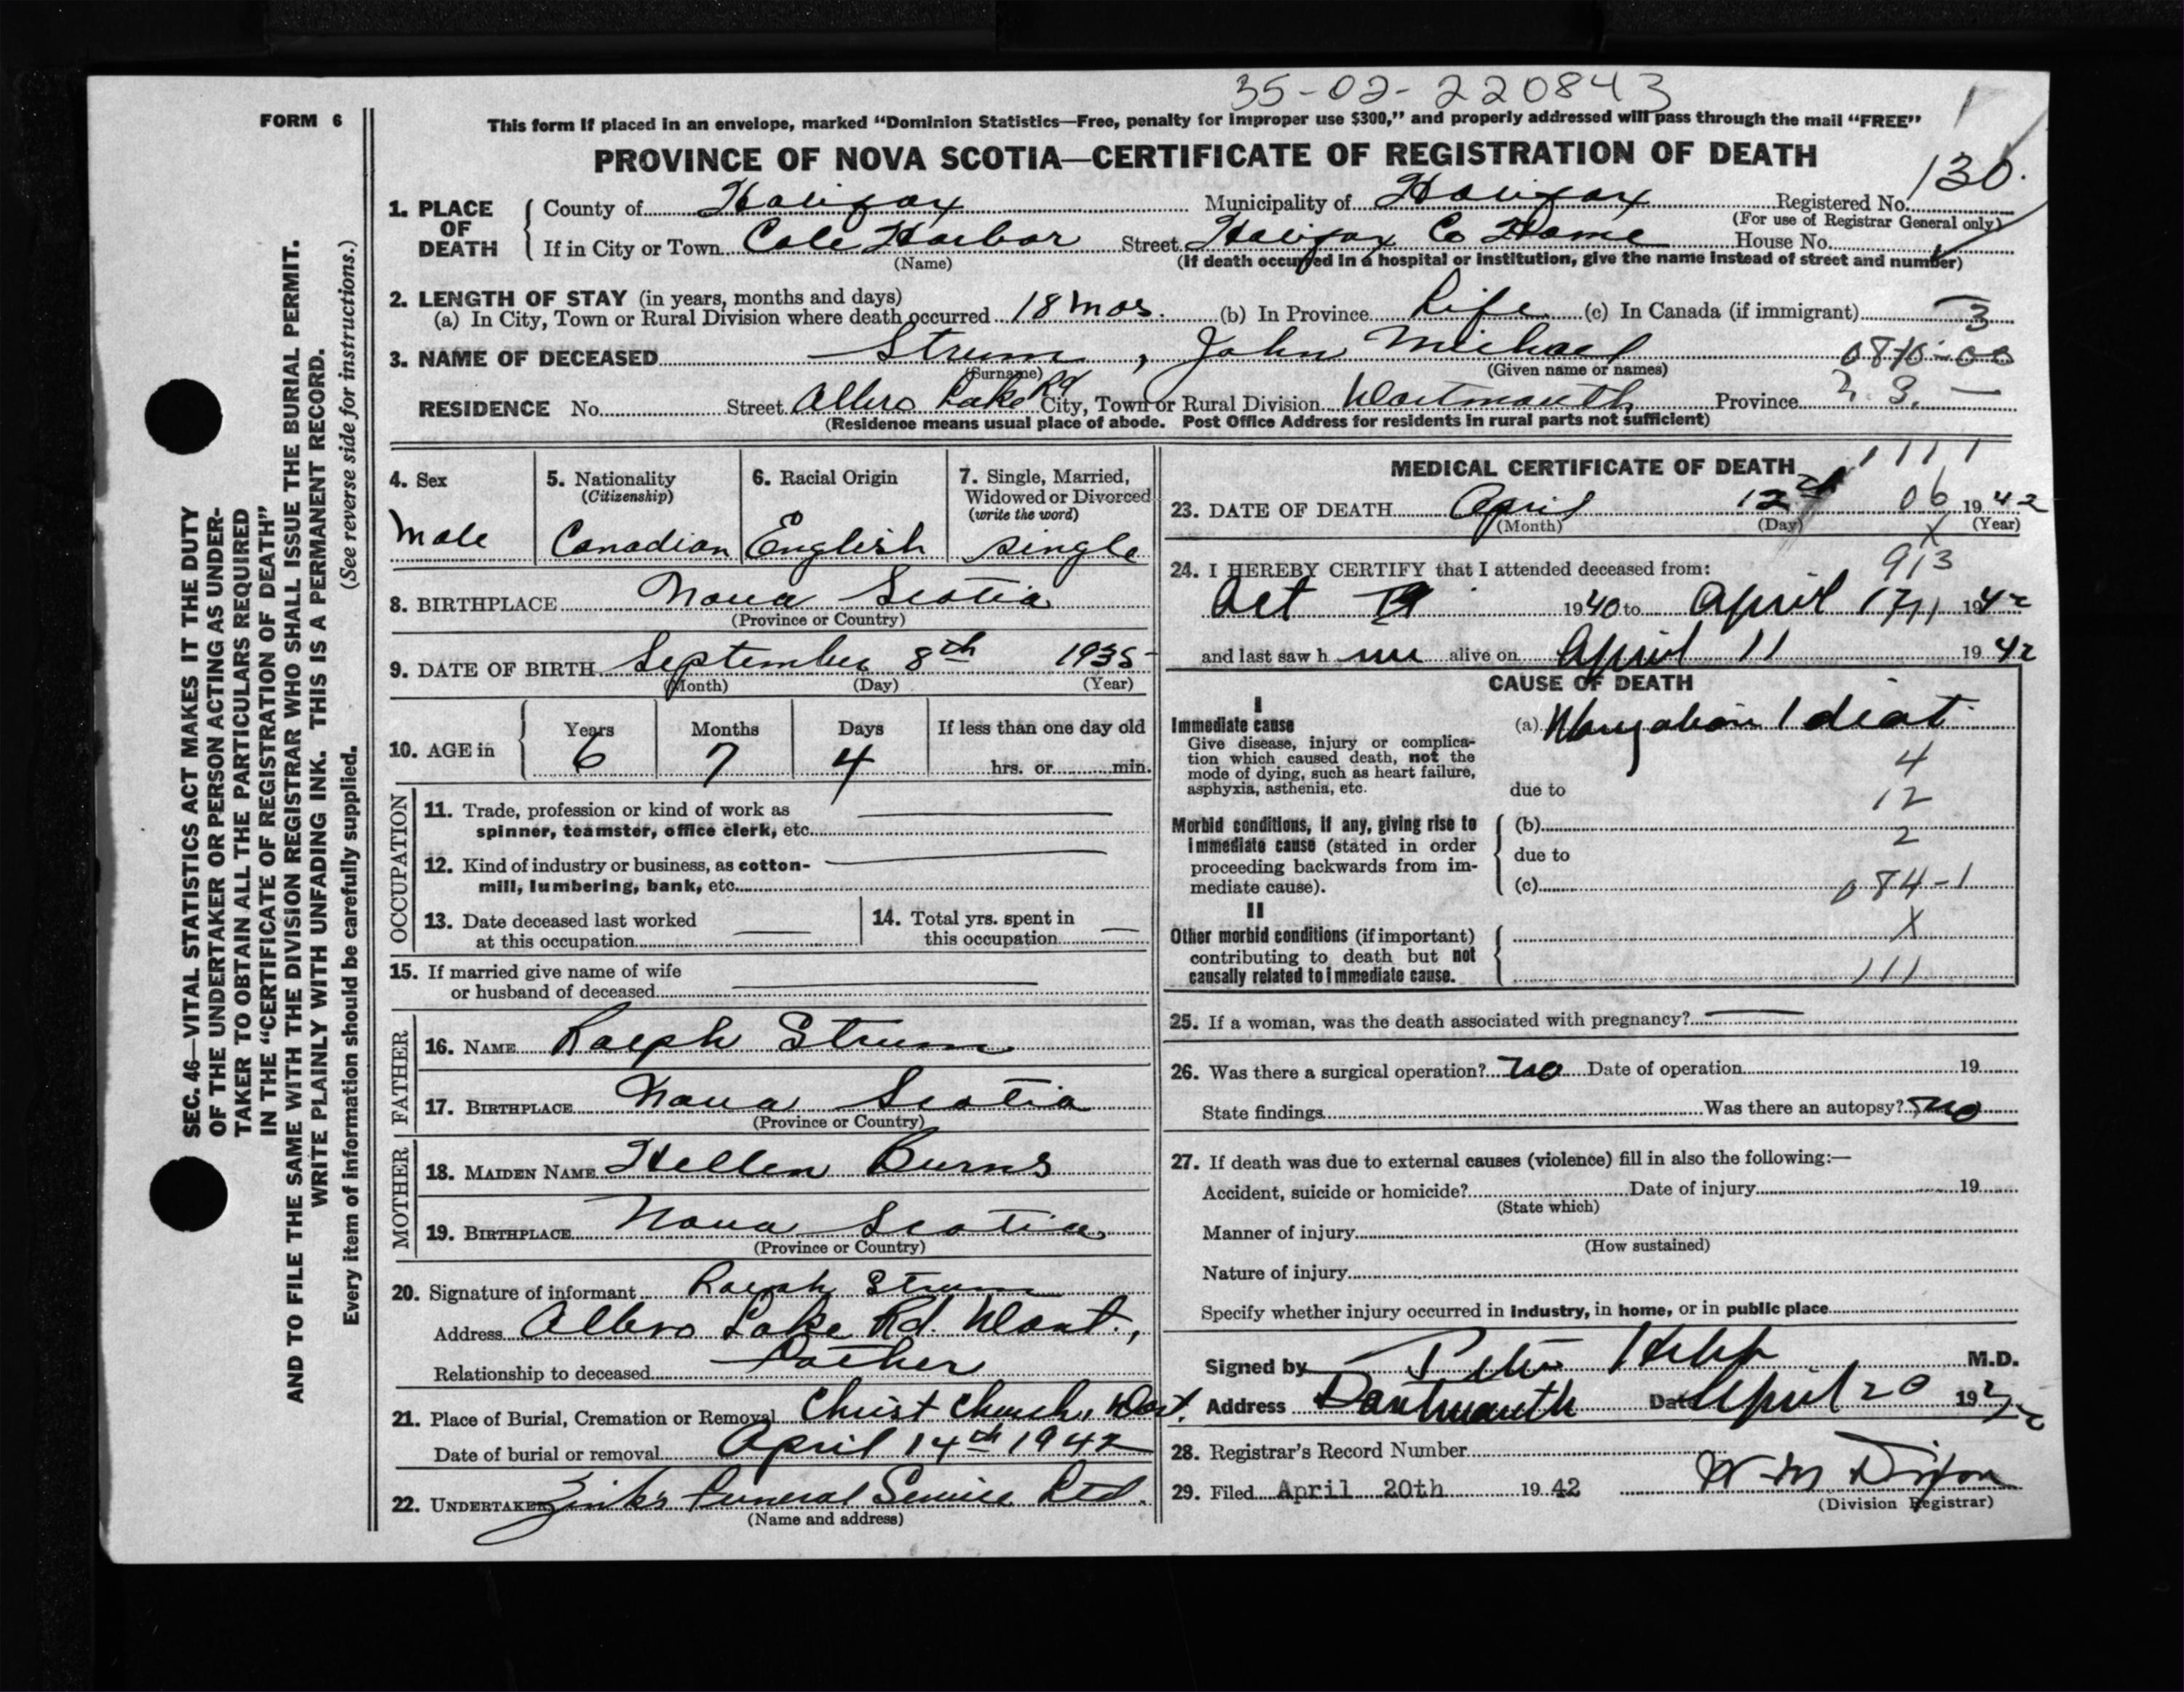 35-02-220843
FORM 6
This form if placed in an envelope, marked "Dominion Statistics—Free, penalty for improper use $300," and properly addressed will pass through the mail "FREE"
PROVINCE OF NOVA SCOTIA—CERTIFICATE OF REGISTRATION OF DEATH
1. PLACE OF DEATH
County of Halifax Municipality of Halifax Registered No. 130.
(For use of Registrar General only)
If in City or Town Cole Harbor Street Halifax Co Home House No.
(Name) (If death occurred in a hospital or institution, give the name instead of street and number)
2. LENGTH OF STAY (in years, months and days)
(a) In City, Town or Rural Division where death occurred 18 mos. (b) In Province Life (c) In Canada (if immigrant) —
3
3. NAME OF DECEASED Strum, John Michael
(Surname) (Given name or names)
RESIDENCE No. Street Albro Lake Rd City, Town or Rural Division Dartmouth Province
(Residence means usual place of abode. Post Office Address for residents in rural parts not sufficient)
4. Sex
Male
5. Nationality
(Citizenship)
Canadian
6. Racial Origin
English
7. Single, Married,
Widowed or Divorced
(write the word)
single
8. BIRTHPLACE Nova Scotia
(Province or Country)
9. DATE OF BIRTH September 8th 1935
(Month) (Day) (Year)
10. AGE in
Years Months Days If less than one day old
6 7 4 hrs. or min.
OCCUPATION
11. Trade, profession or kind of work as
spinner, teamster, office clerk, etc. —
12. Kind of industry or business, as cotton-
mill, lumbering, bank, etc. —
13. Date deceased last worked
at this occupation —
14. Total yrs. spent in
this occupation —
15. If married give name of wife
or husband of deceased —
FATHER
16. NAME Ralph Strum
17. BIRTHPLACE Nova Scotia
(Province or Country)
MOTHER
18. MAIDEN NAME Hellen Burns
19. BIRTHPLACE Nova Scotia
(Province or Country)
20. Signature of informant Ralph Strum
Address Albro Lake Rd. Dart.,
Relationship to deceased Father
21. Place of Burial, Cremation or Removal Christ Church, Dart.
Date of burial or removal April 14th 1942
22. UNDERTAKER Zink's Funeral Service Ltd.
(Name and address)
MEDICAL CERTIFICATE OF DEATH
1111
23. DATE OF DEATH April 12 06 1942
(Month) (Day) (Year)
X
913
24. I HEREBY CERTIFY that I attended deceased from:
Oct 1940 to April 1942
and last saw h im alive on April 11 1942
CAUSE OF DEATH
I
Immediate cause
Give disease, injury or complica-
tion which caused death, not the
mode of dying, such as heart failure,
asphyxia, asthenia, etc.
(a) Mongolian Idiot
4
due to
12
Morbid conditions, if any, giving rise to
immediate cause (stated in order
proceeding backwards from im-
mediate cause).
(b)
2
due to
(c) 084-1
II
Other morbid conditions (if important)
contributing to death but not
causally related to immediate cause.
X
111
25. If a woman, was the death associated with pregnancy? —
26. Was there a surgical operation? no Date of operation 19
State findings Was there an autopsy? no
27. If death was due to external causes (violence) fill in also the following:—
Accident, suicide or homicide? Date of injury 19
(State which)
Manner of injury
(How sustained)
Nature of injury
Specify whether injury occurred in industry, in home, or in public place
Signed by M.D.
Address Dartmouth Date April 20 1942
28. Registrar's Record Number
29. Filed April 20th 1942 W M Dixon
(Division Registrar)
SEC. 46—VITAL STATISTICS ACT MAKES IT THE DUTY
OF THE UNDERTAKER OR PERSON ACTING AS UNDER-
TAKER TO OBTAIN ALL THE PARTICULARS REQUIRED
IN THE "CERTIFICATE OF REGISTRATION OF DEATH"
AND TO FILE THE SAME WITH THE DIVISION REGISTRAR WHO SHALL ISSUE THE BURIAL PERMIT.
WRITE PLAINLY WITH UNFADING INK. THIS IS A PERMANENT RECORD.
Every item of information should be carefully supplied. (See reverse side for instructions.)